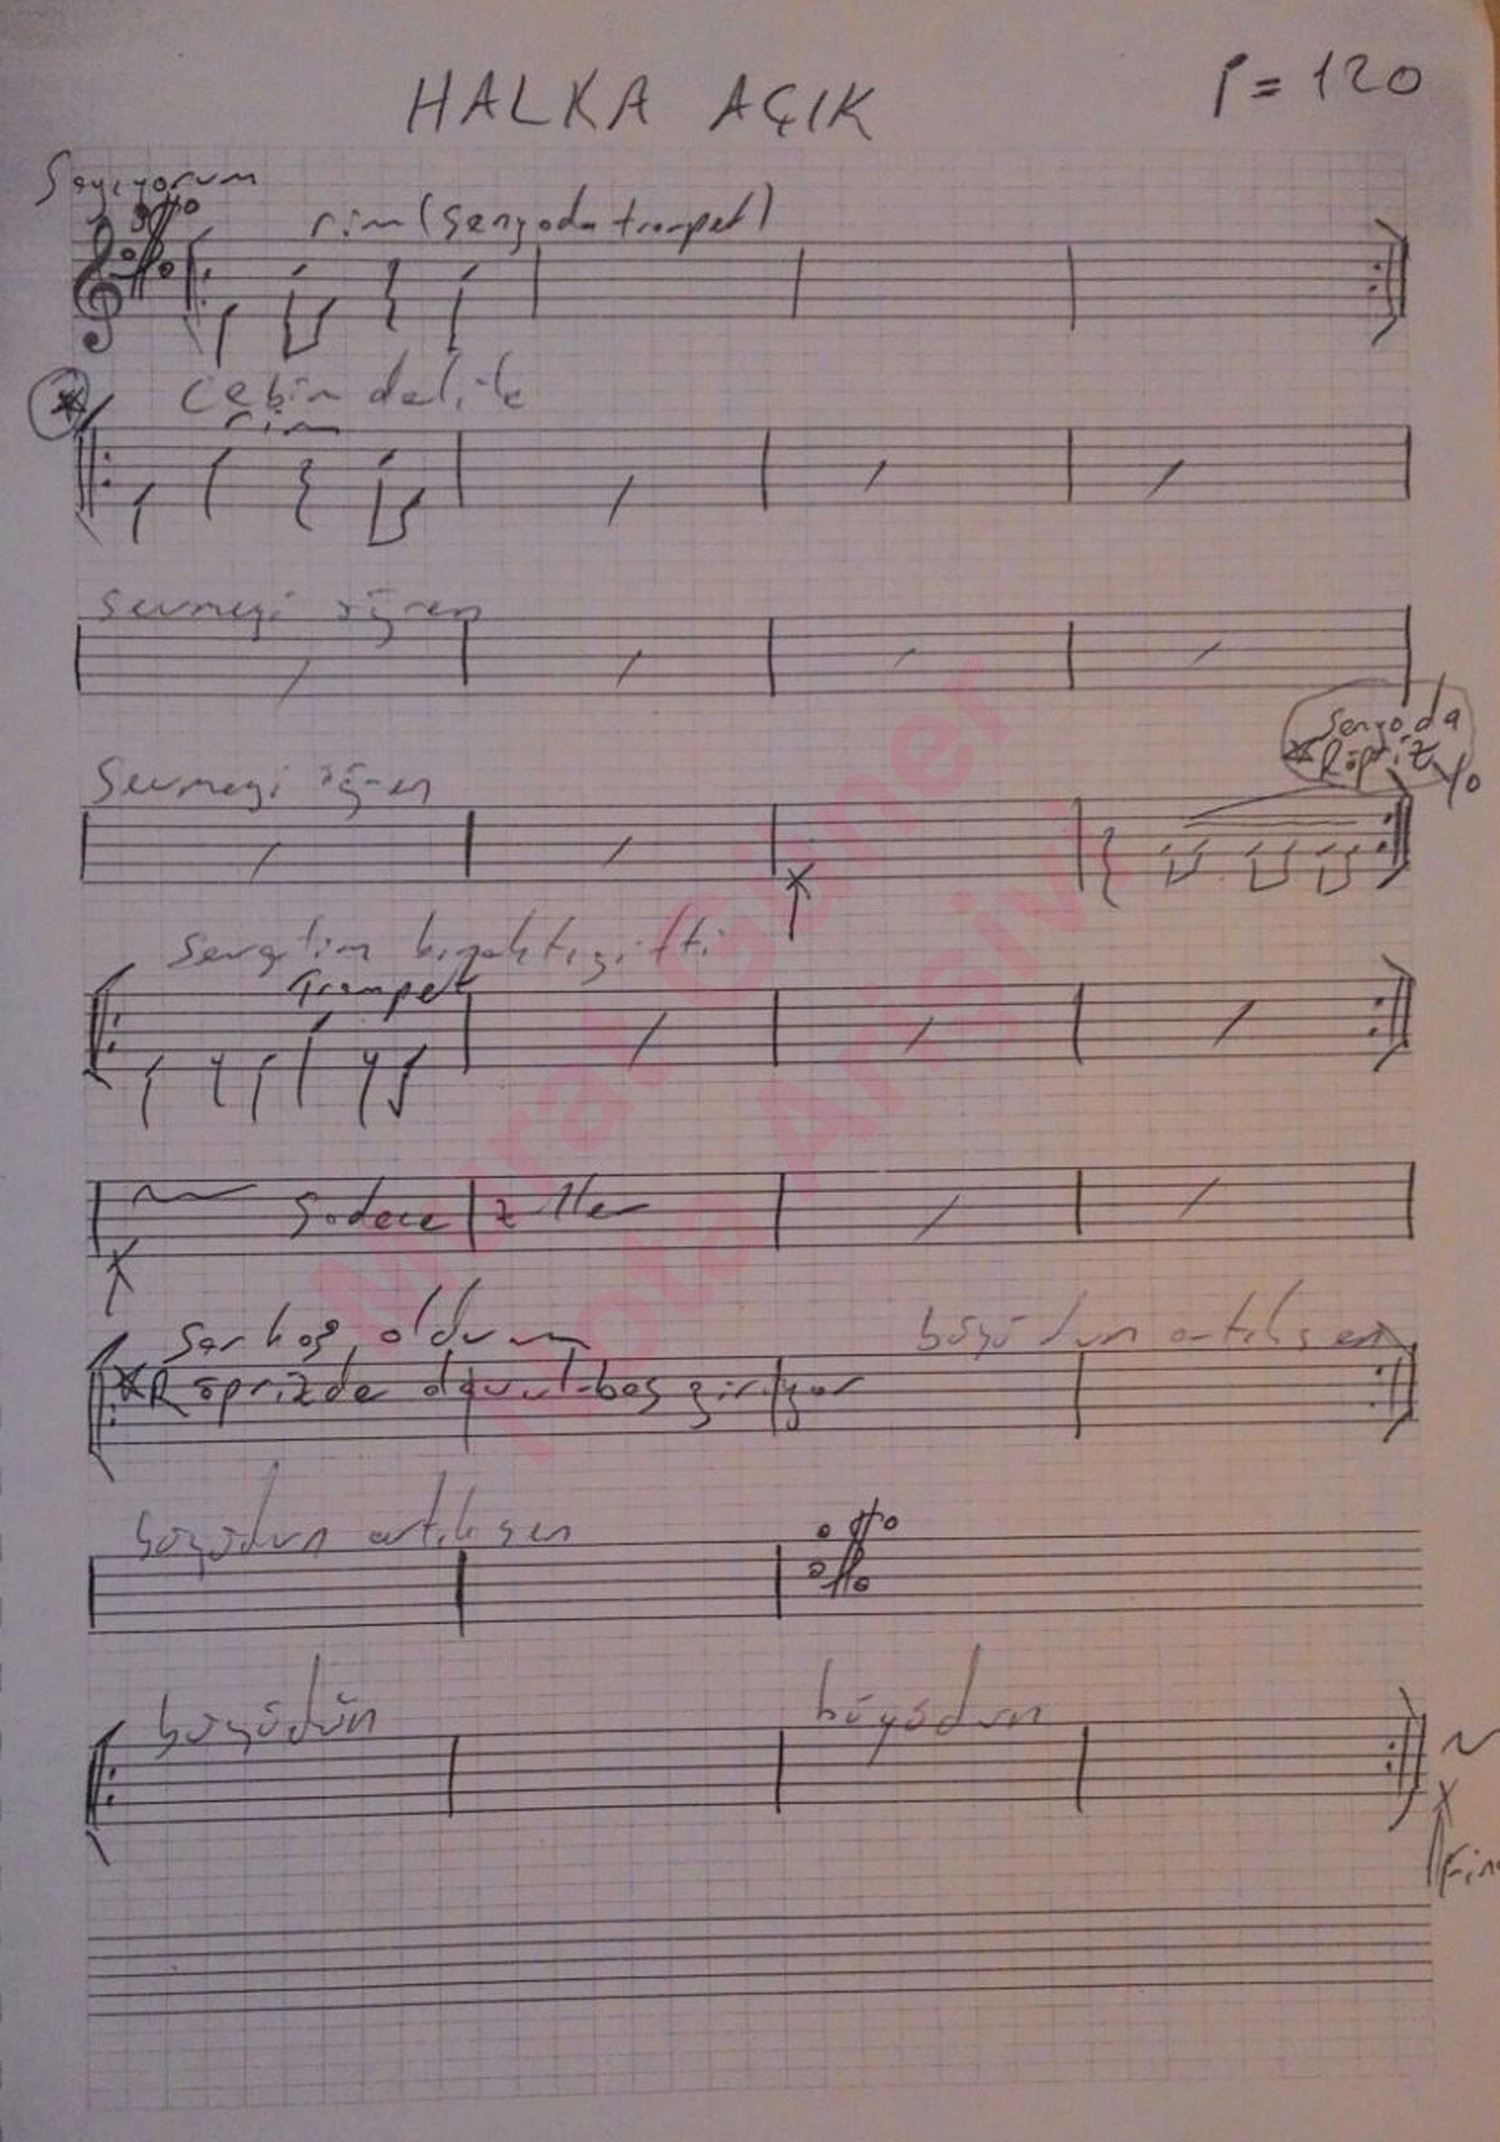 HALKA AÇIK
= 120
Sayıyorum
rim (Senyoda trampet)
Cebin delik
rim
Sevmeyi öğren
Senyoda
Röpriz yo
Sevmeyi öğren
Trampet
Sadece ziller
Sarhoş oldum
büyüdün artık sen
Röprizde davul-bas giriyor
büyüdün artık sen
büyüdün
büyüdün
Murat Güner
Nota Arşivi